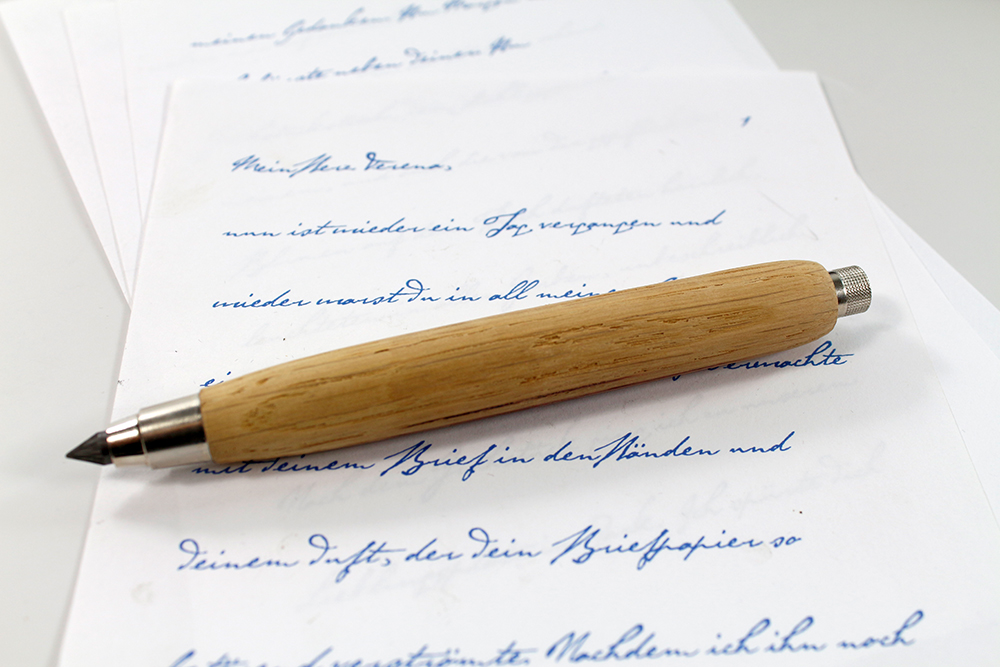 meinen Gedanken
neben deinen
1
Verena,
nun ist wieder ein Tag vergangen und
wieder warst Du in all
mit deinem Brief in den Händen und
deinem Duft, der Dein Briefpapier so
verströmte. Nachdem ich ihn noch